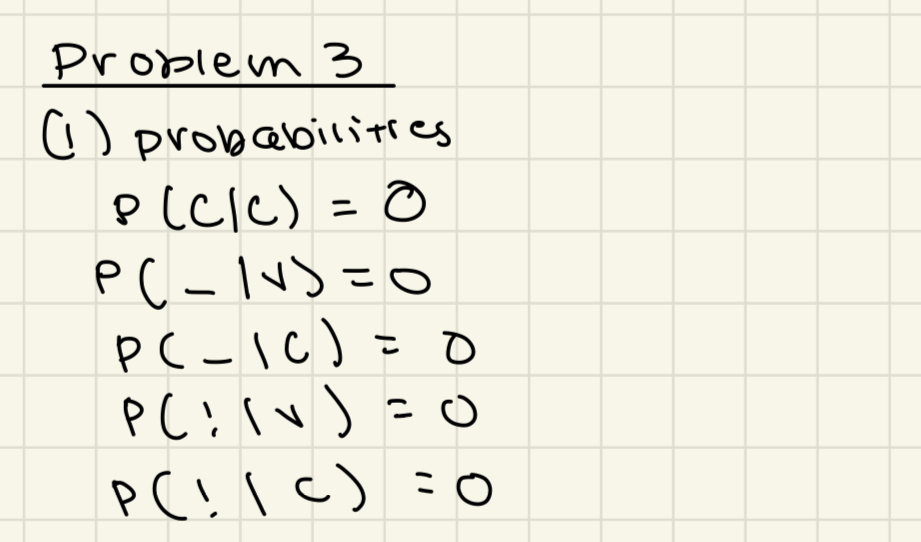 Problem 3
(1) probabilities
P(C|C) = 0
P(_|V) = 0
P(_|C) = 0
P(!|V) = 0
P(!|C) = 0